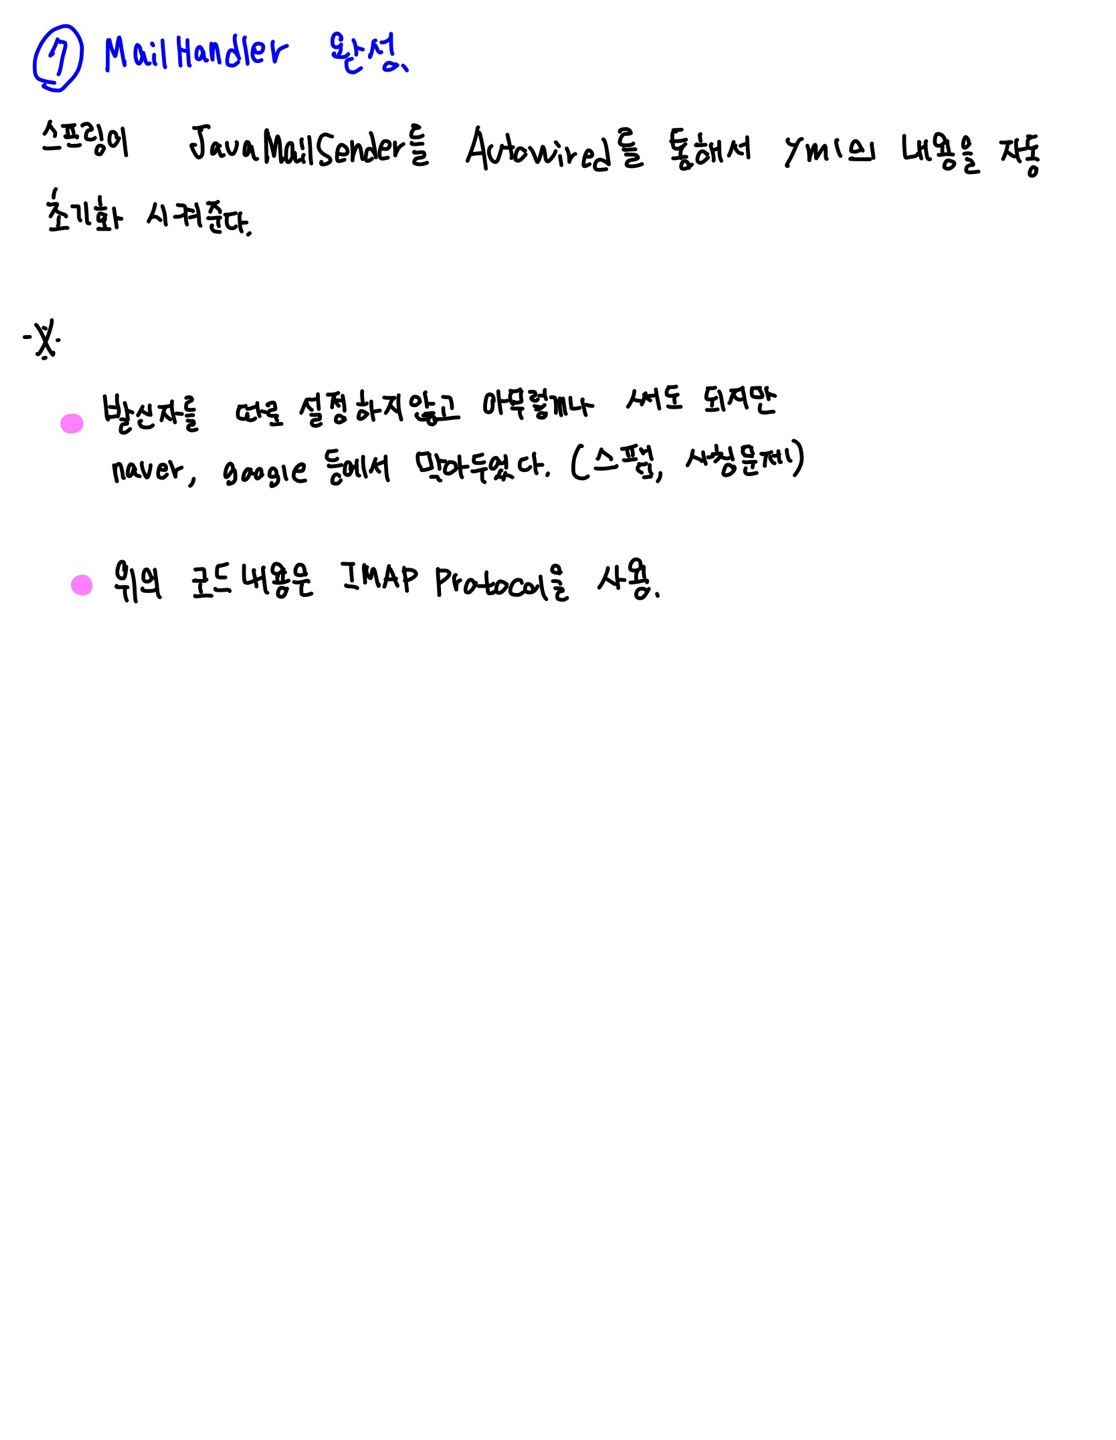 ⑦ MailHandler 완성.
스프링이 JavaMailSender를 Autowired를 통해서 yml의 내용을 자동
초기화 시켜준다.
※
발신자를 따로 설정하지않고 아무렇게나 써도 되지만
naver, google 등에서 막아두었다. (스팸, 사칭문제)
위의 코드내용은 IMAP Protocol을 사용.